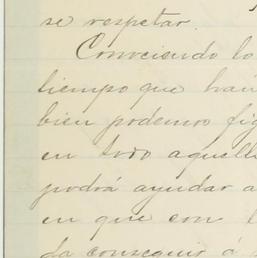 se respetar.
Conociendo lo
tiempo que han
bien podemos fig
en todo aquell
podrá ayudar a
en que con l
da conseguir á